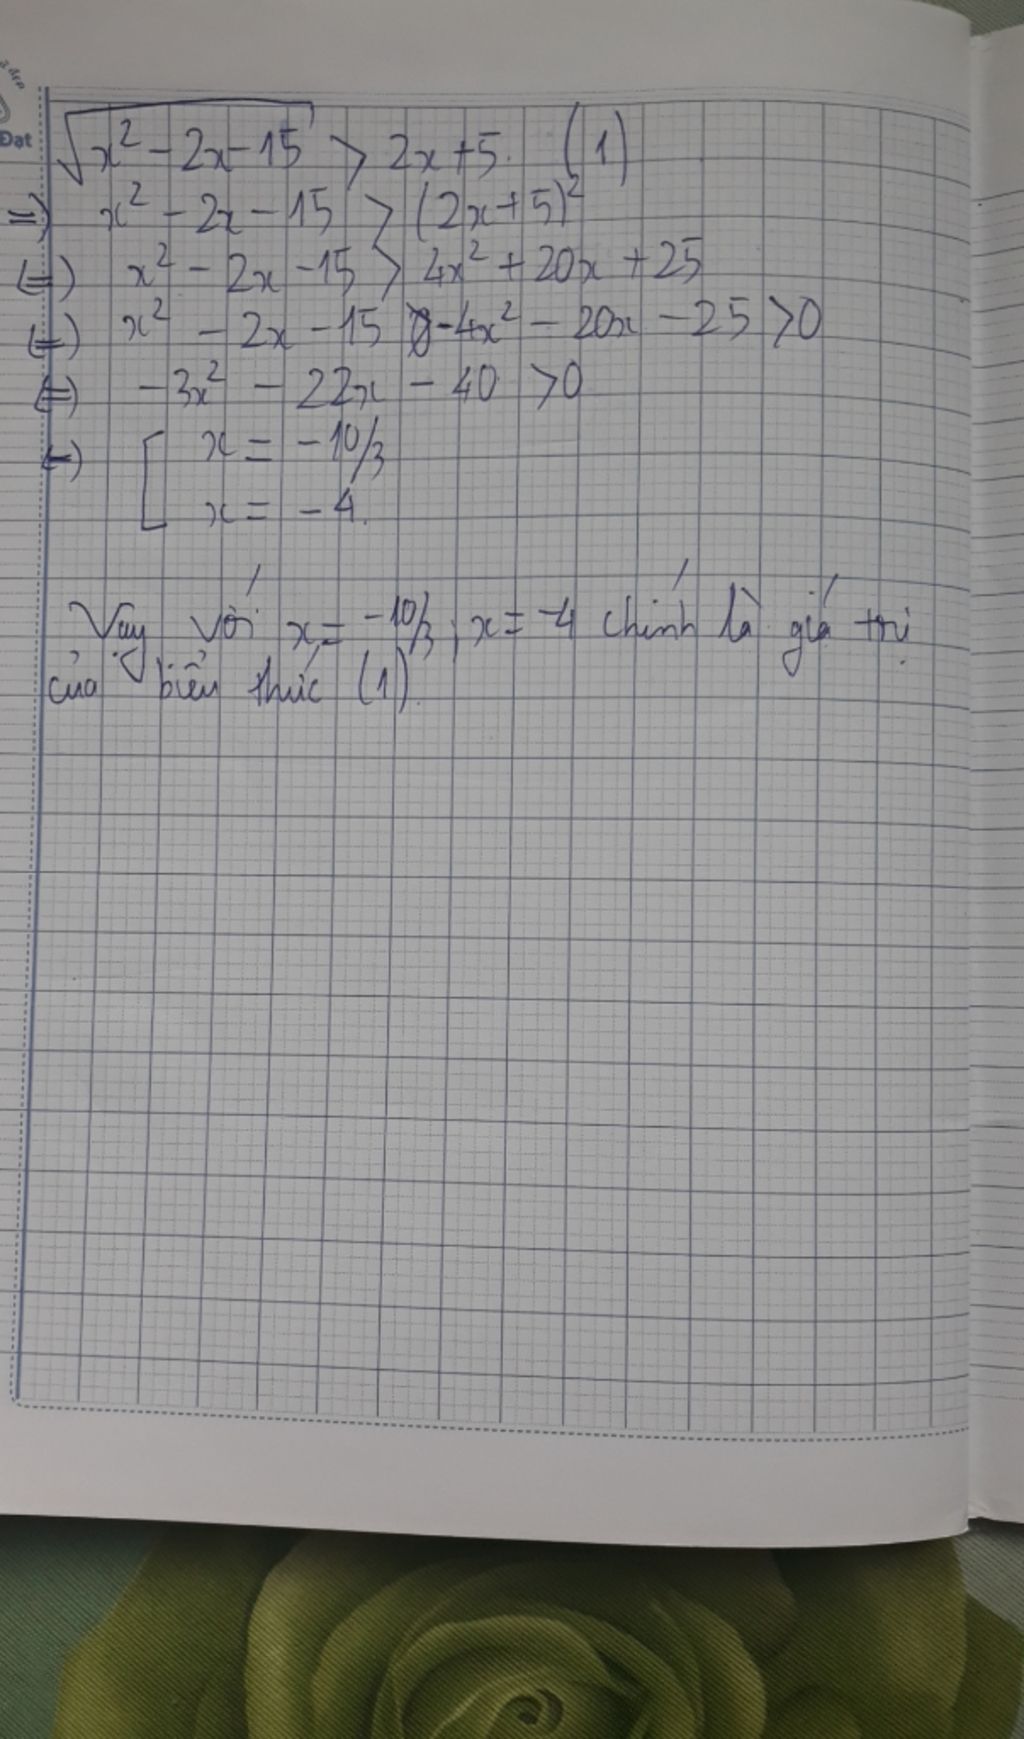 à đẹp
Đạt
√(x² - 2x - 15) > 2x + 5. (1)
=) x² - 2x - 15 > (2x + 5)²
(=) x² - 2x - 15 > 4x² + 20x + 25
(=) x² - 2x - 15 - 4x² - 20x - 25 > 0
(=) -3x² - 22x - 40 > 0
(=) [ x = -10/3
x = -4.
Vậy với x = -10/3 ; x = -4 chính là giá trị
của biểu thức (1).